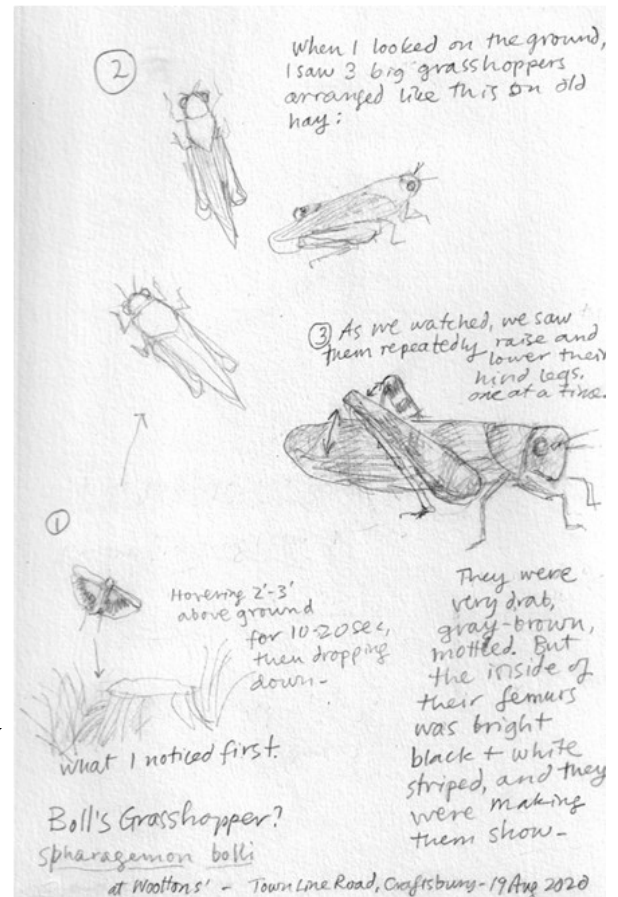 2
When I looked on the ground,
I saw 3 big grasshoppers
arranged like this on old
hay:
3 As we watched, we saw
them repeatedly raise and
lower their
hind legs.
one at a time.
1
Hovering 2'-3'
above ground
for 10-20 sec,
then dropping
down-
what I noticed first.
They were
very drab,
gray-brown,
mottled. But
the inside of
their femurs
was bright
black + white
striped, and they
were making
them show-
Boll's Grasshopper?
spharagemon bolli
at Woottons' - Town Line Road, Craftsbury - 19 Aug 2020